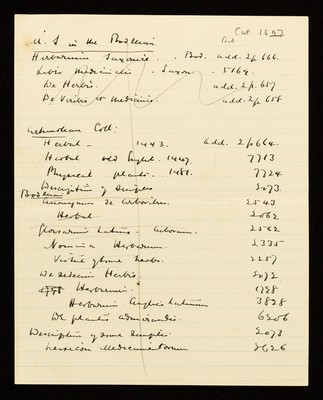 Cat 1697
M. S in the Bodleian
Bod.
Herbarium Saxonice . . Bod. add. 2 p. 666.
Liber Medicinalis . Saxon. . 5169.
De Herbis. add. 2 p. 657
De Verbis in Medicinis. add. 2 p. 658
Ashmolean Coll:
Herbal - 1443. add. 2 p. 664.
Herbal old Englt. 1447. 7713
Physical plants. 1481. 7724
Description of Simples 2073
Bodleian
Anonymus de Arboribus. 2543
Herbal 2062
Glossarium Latino- Arborum. 2562
Nomina Herbarum. 2335
Virtues of some herbs. 2257
De Herbis. 2072
Herbarum. 1798
Herbarium Anglico Latinum 3828
De plantis admirandis. 6206
Description of some Simples. 2073
Lexicon Medicamentorum 2626